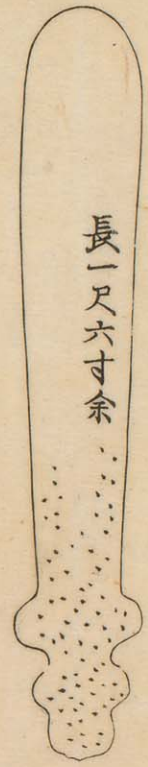 長一尺六寸余